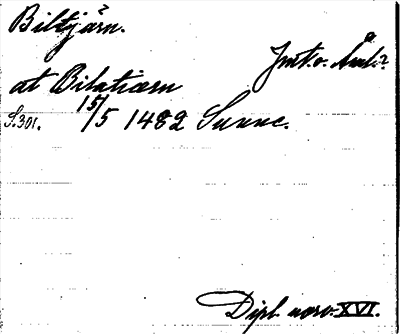 Biltjärn.
Jmt. o. Ånl.?
at Bilatiærn
S. 301. 15/5 1482 Sunne.
Dipl. norv. XVI.